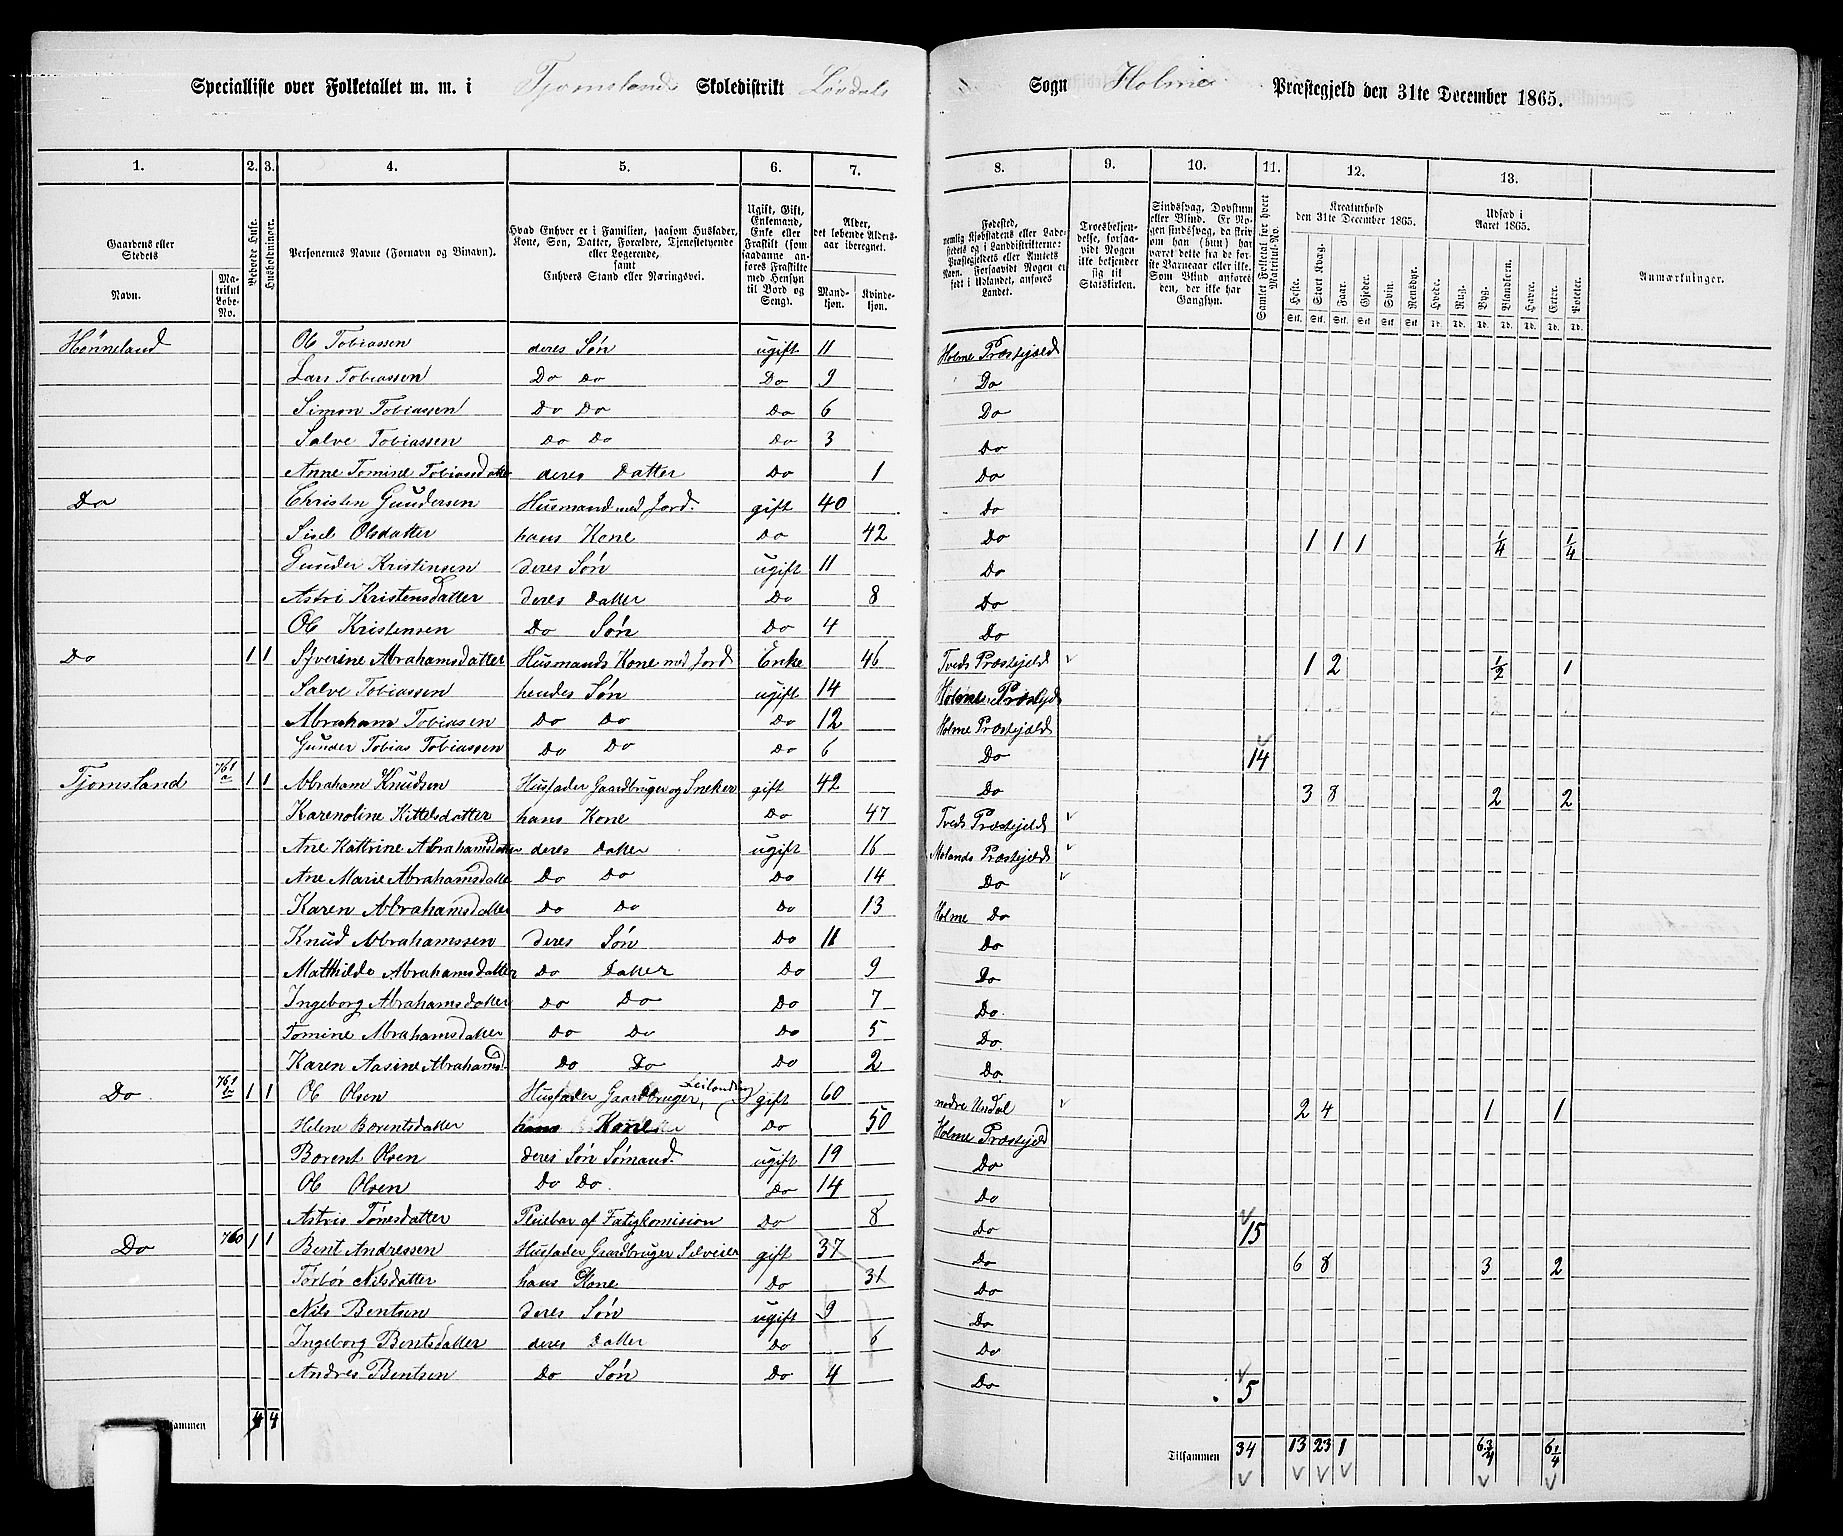 Specialliste over Folketallet m. m. i Tjomslands Skoledistrikt Løvdals Sogn Holme Præstegjeld den 31te December 1865.
1. 2. 3. 4. 5. 6. 7. 8. 9. 10. 11. 12. 13.
Gaardens eller Stedets
Navn.
Matrikul Løbe-No.
Beboede Huse.
Husholdninger.
Personernes Navne (Fornavn og Binavn).
Hvad Enhver er i Familien, saasom Husfader, Kone, Søn, Datter, Forældre, Tjenestetyende eller Logerende, samt Enhvers Stand eller Næringsvei.
Ugift, Gift, Enkemand, Enke eller Fraskilt (saasom saadanne anføres Fraskilte med Hensyn til Bord og Seng).
Alder, det løbende Aldersaar iberegnet.
Mandkjøn. Kvindekjøn.
Fødested,
Troesbekjendelse, forsaavidt Nogen ikke bekjender sig til Statskirken.
Samlet Folketal for hvert Matrikul-No.
Kreaturhold den 31te December 1865.
Heste. Stort Kvæg. Faar. Gjeder. Svin. Rensdyr.
Udsæd i Aaret 1865.
Hvede. Rug. Byg. Blandkorn. Havre. Erter. Poteter.
Anmærkninger.
Hønneland Ole Tobiassen deres Søn ugift 11 Holme Præstejeld
Lars Tobiassen Do Do Do 9 Do
Simon Tobiassen Do Do Do 6 Do
Salve Tobiassen Do Do Do 3 Do
Anne Tomine Tobiasdatter deres Datter Do 1 Do
Do Christen Gundersen Husmand med Jord. gift 40 Do
Sisel Olsdatter hans Kone Do 42 Do 1 1 1 1/4 1/4
Gunder Kristensen deres Søn ugift 11 Do
Astri Kristensdatter deres Datter Do 8 Do
Ole Kristensen Do Søn Do 4 Do
Do 1 1 Syverine Abrahamsdatter Husmands Kone med Jord Enke 46 Tveds Præstejeld 1 2 1/2 1
Salve Tobiassen hendes Søn ugift 14 Holme Præstejeld
Abraham Tobiasen Do Do Do 12 Holme Præstejeld
Gunder Tobias Tobiassen Do Do Do 6 Do 14
Tjomsland 761 a 1 1 Abraham Knudsen Husfader Gaardbruger og Sneker gift 42 Do 3 8 2 2
Karenoline Kittelsdatter hans Kone Do 47 Tveds Præstejeld
Ane Kattrine Abrahamsdatter deres Datter ugift 16 Molands Præstejeld
Ane Marie Abrahamsdatter Do Do Do 14 Do
Karen Abrahamsdatter Do Do Do 13 Holme Do
Knud Abrahamssen deres Søn Do 11 Do
Matthilde Abrahamsdatter Do Datter Do 9 Do
Ingeborg Abrahamsdatter Do Do Do 7 Do.
Tomine Abrahamsdatter Do Do Do 5 Do.
Karen Aasine Abrahamsd. Do Do Do 2 Do.
Do. 761 b 1 1 Ole Olsen Husfader Gaardbruger, Leilænding gift 60 nodre Undal 2 4 1 1
Helene Borentsdatter hans Kone Do 50 Holme Præstejeld
Borent Olsen deres Søn Sømand. ugift 19 Do
Ole Olsen Do Do. Do 14 Do
Astris Tønesdatter Pleiebar af Fatigkomision Do 8 Do 15
Do 760 1 1 Bent Andressen Husfader Gaardbruger Selveier gift 37 Do 6 8 3 2
Torbør Nilsdatter hans Kone Do 31 Do
Nils Bentsen deres Søn ugift 9 Do
Ingeborg Bentsdatter deres Datter Do 6 Do
Andres Bentsen Do Søn Do 4 Do 5
4 4 Tilsammen 34 13 23 1 6 3/4 6 1/4